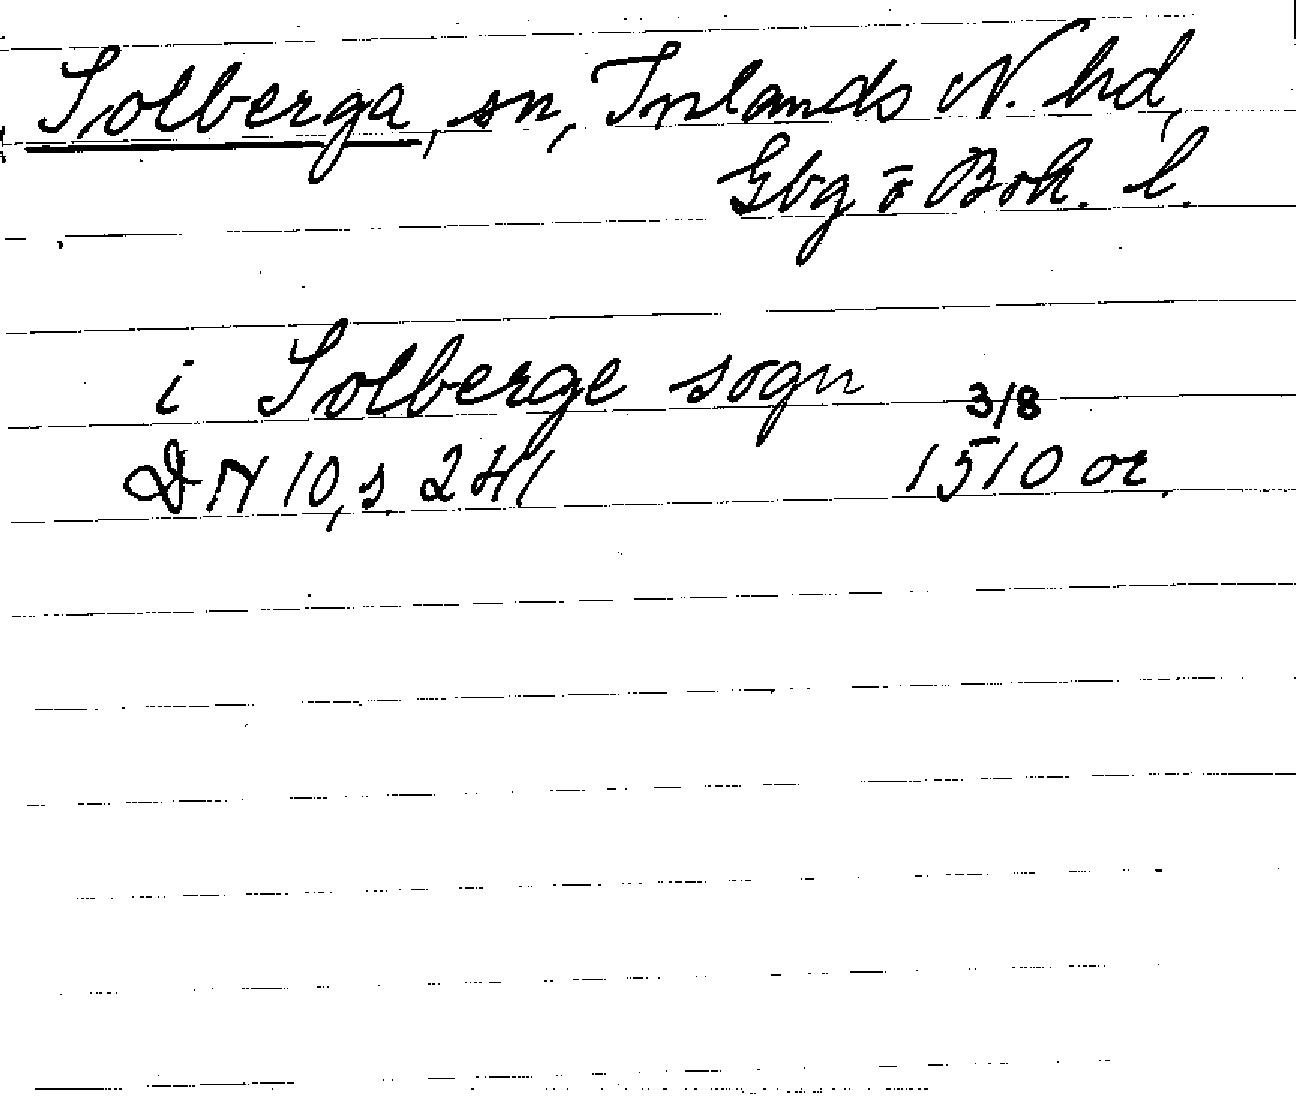 Solberga, sn, Inlands N. hd,
Gbg o Boh. l.
i Solberge sogn
3/8
DN 10, s. 241 1510 or.